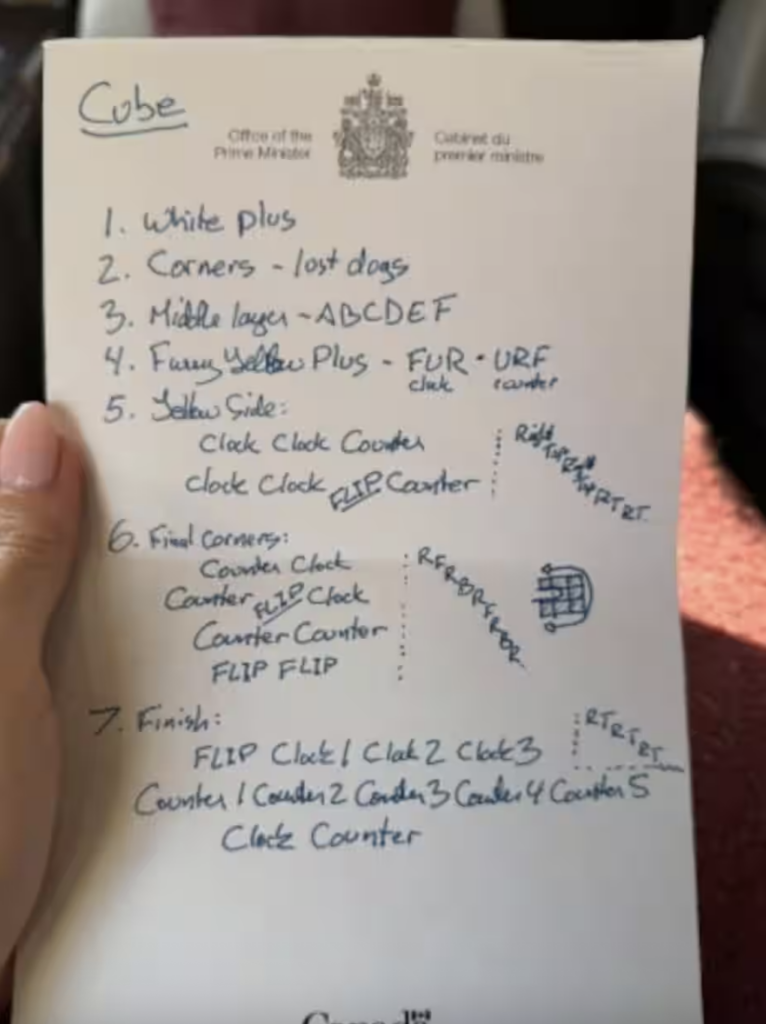 Cube
Office of the
Prime Minister
Cabinet du
premier ministre
1. White plus
2. Corners - lost dogs
3. Middle layer - ABCDEF
4. Funny Yellow Plus - FUR • URF
clock counter
5. Yellow Side:
Clock Clock Counter
Clock Clock FLIP Counter
Right Top Right Top RTRT
6. Final Corners:
Counter Clock
Counter FLIP Clock
Counter Counter
FLIP FLIP
7. Finish:
FLIP Clock 1 Clock 2 Clock 3
RTRTRT
Counter 1 Counter 2 Counter 3 Counter 4 Counter 5
Clock Counter
Canada